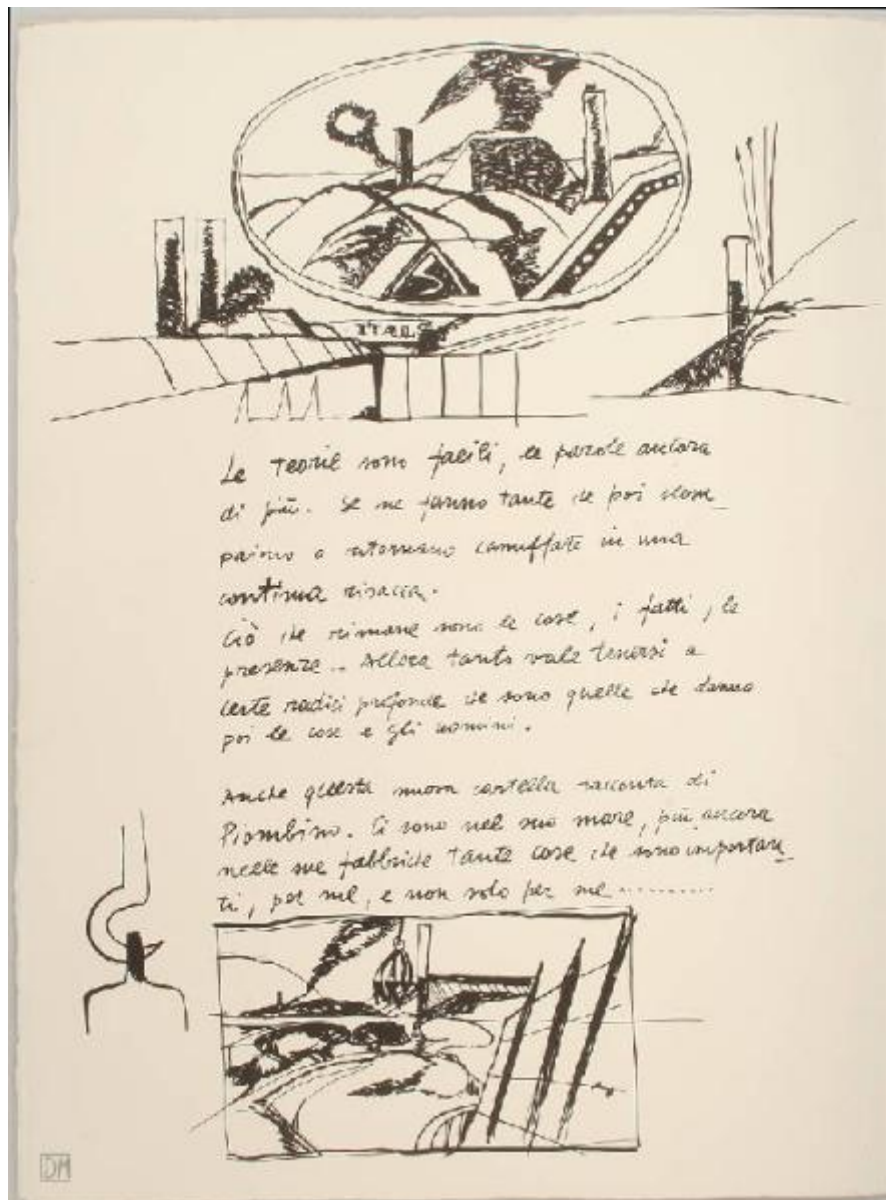 ITALS
Le teorie sono facili, le parole ancora
di più. Se ne fanno tante che poi scom
paiono o ritornano camuffate in una
continua risacca.
Ciò che rimane sono le cose, i fatti, le
presenze.. Allora tanto vale tenersi a
certe radici profonde che sono quelle che danno
poi le cose e gli uomini.
Anche questa nuova cartella racconta di
Piombino. Ci sono nel suo mare, più ancora
nelle sue fabbriche tante cose che sono importan
ti, per me, e non solo per me..........
DM